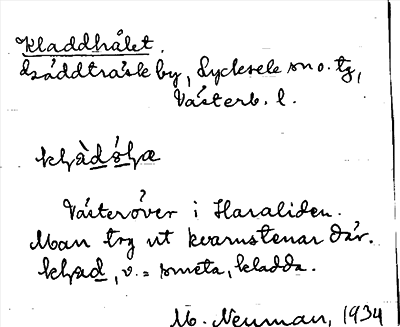 Kladdhålet.
Gäddträsk by, Lycksele sn o. tg,
Västerb. l.
Västeröver i Haraliden.
Man tog ut kvarnstenar där.
v. = smeta, kladda.
M. Neuman, 1934